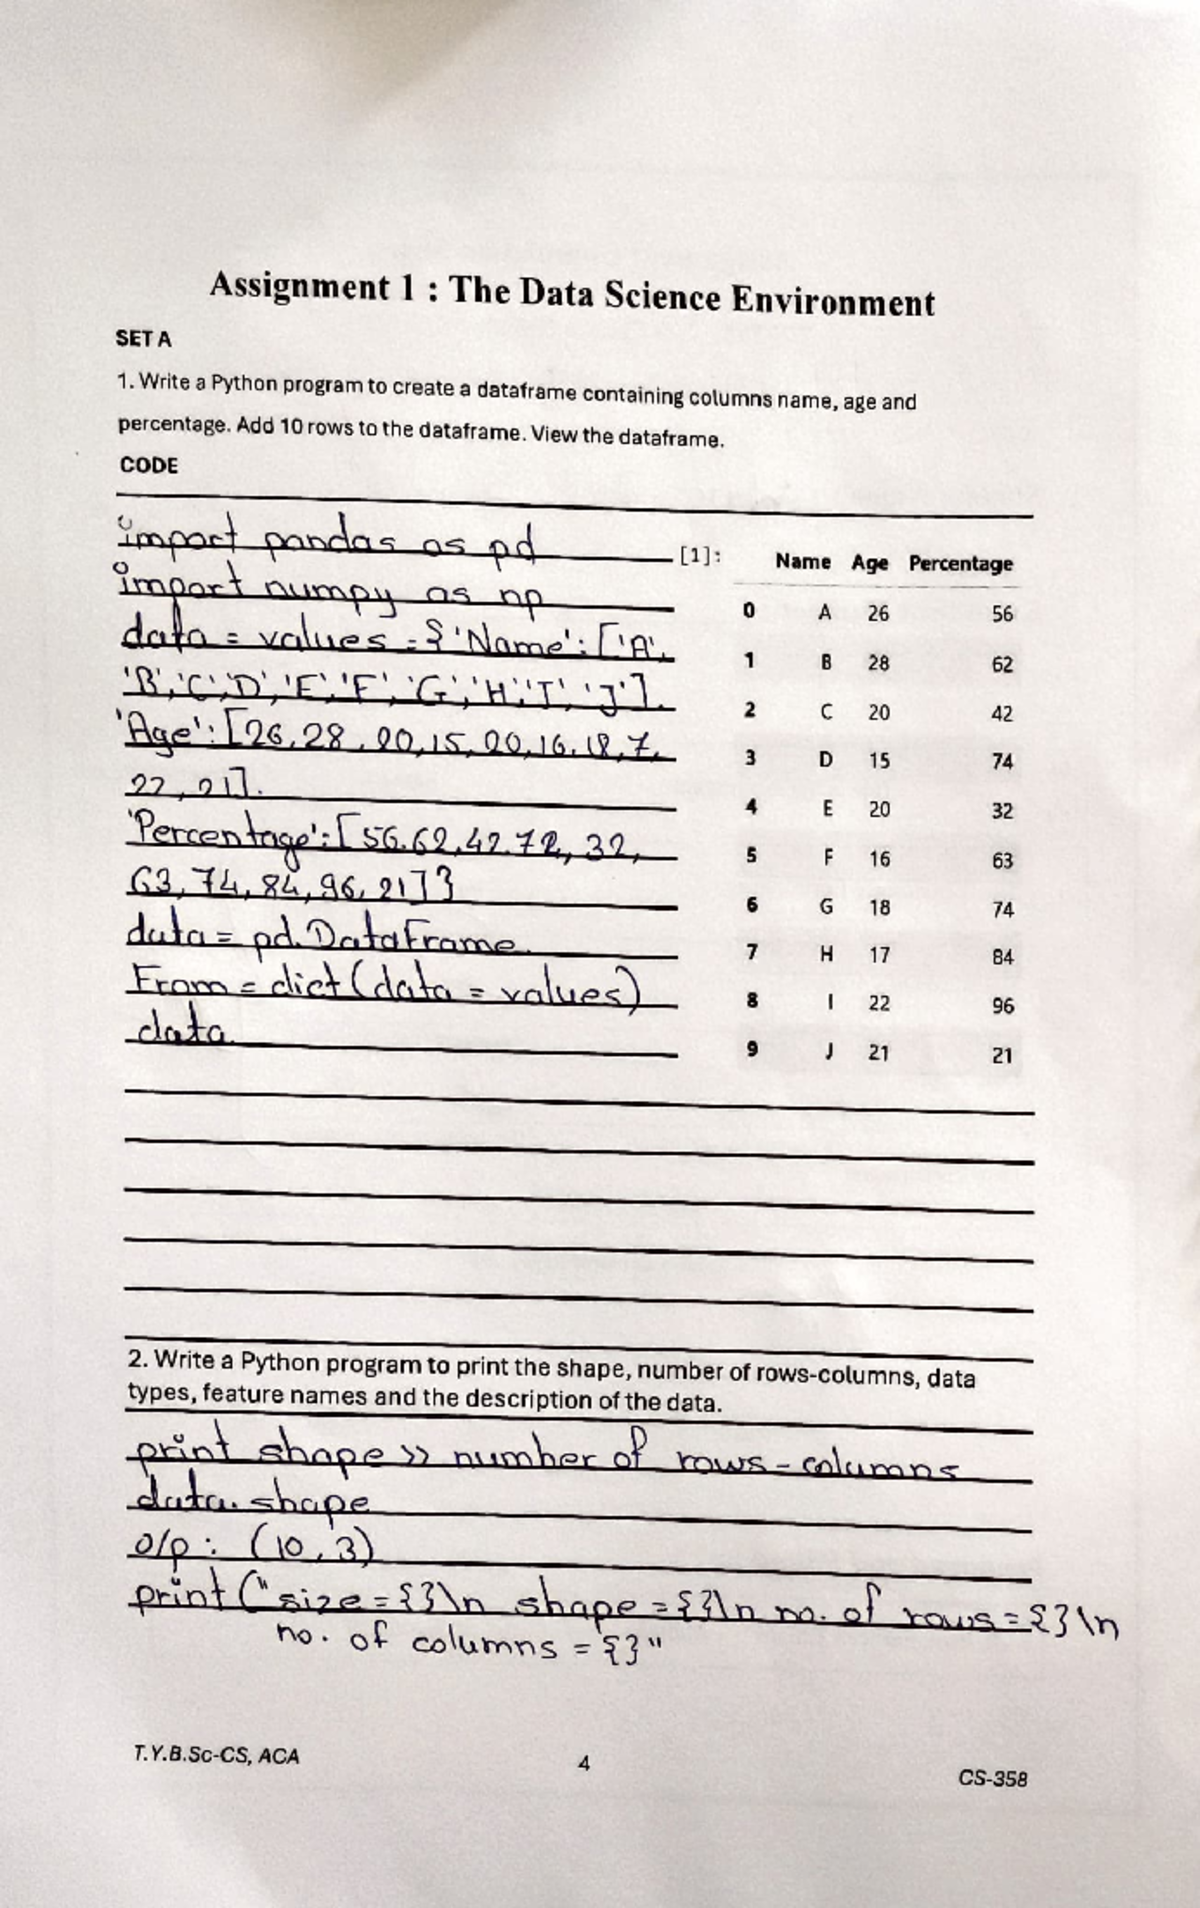 Assignment 1 : The Data Science Environment
SET A
1. Write a Python program to create a dataframe containing columns name, age and
percentage. Add 10 rows to the dataframe. View the dataframe.
CODE
import pandas as pd
import numpy as np
data = values = {'Name': ['A',
'B','C','D','E','F','G','H','I','J'],
'Age': [26, 28, 20, 15, 20, 16, 18, 7,
22, 21],
'Percentage': [56, 62, 42, 72, 32,
63, 74, 84, 96, 21]}
data = pd.DataFrame.
From = dict (data = values)
data
[1]: Name Age Percentage
0 A 26 56
1 B 28 62
2 C 20 42
3 D 15 74
4 E 20 32
5 F 16 63
6 G 18 74
7 H 17 84
8 I 22 96
9 J 21 21
2. Write a Python program to print the shape, number of rows-columns, data
types, feature names and the description of the data.
print shape >> number of rows - columns
data. shape
o/p : (10, 3)
print ("size = {}\n shape = {}\n no. of rows = {}\n
no. of columns = {}"
T.Y.B.Sc-CS, ACA
4
CS-358